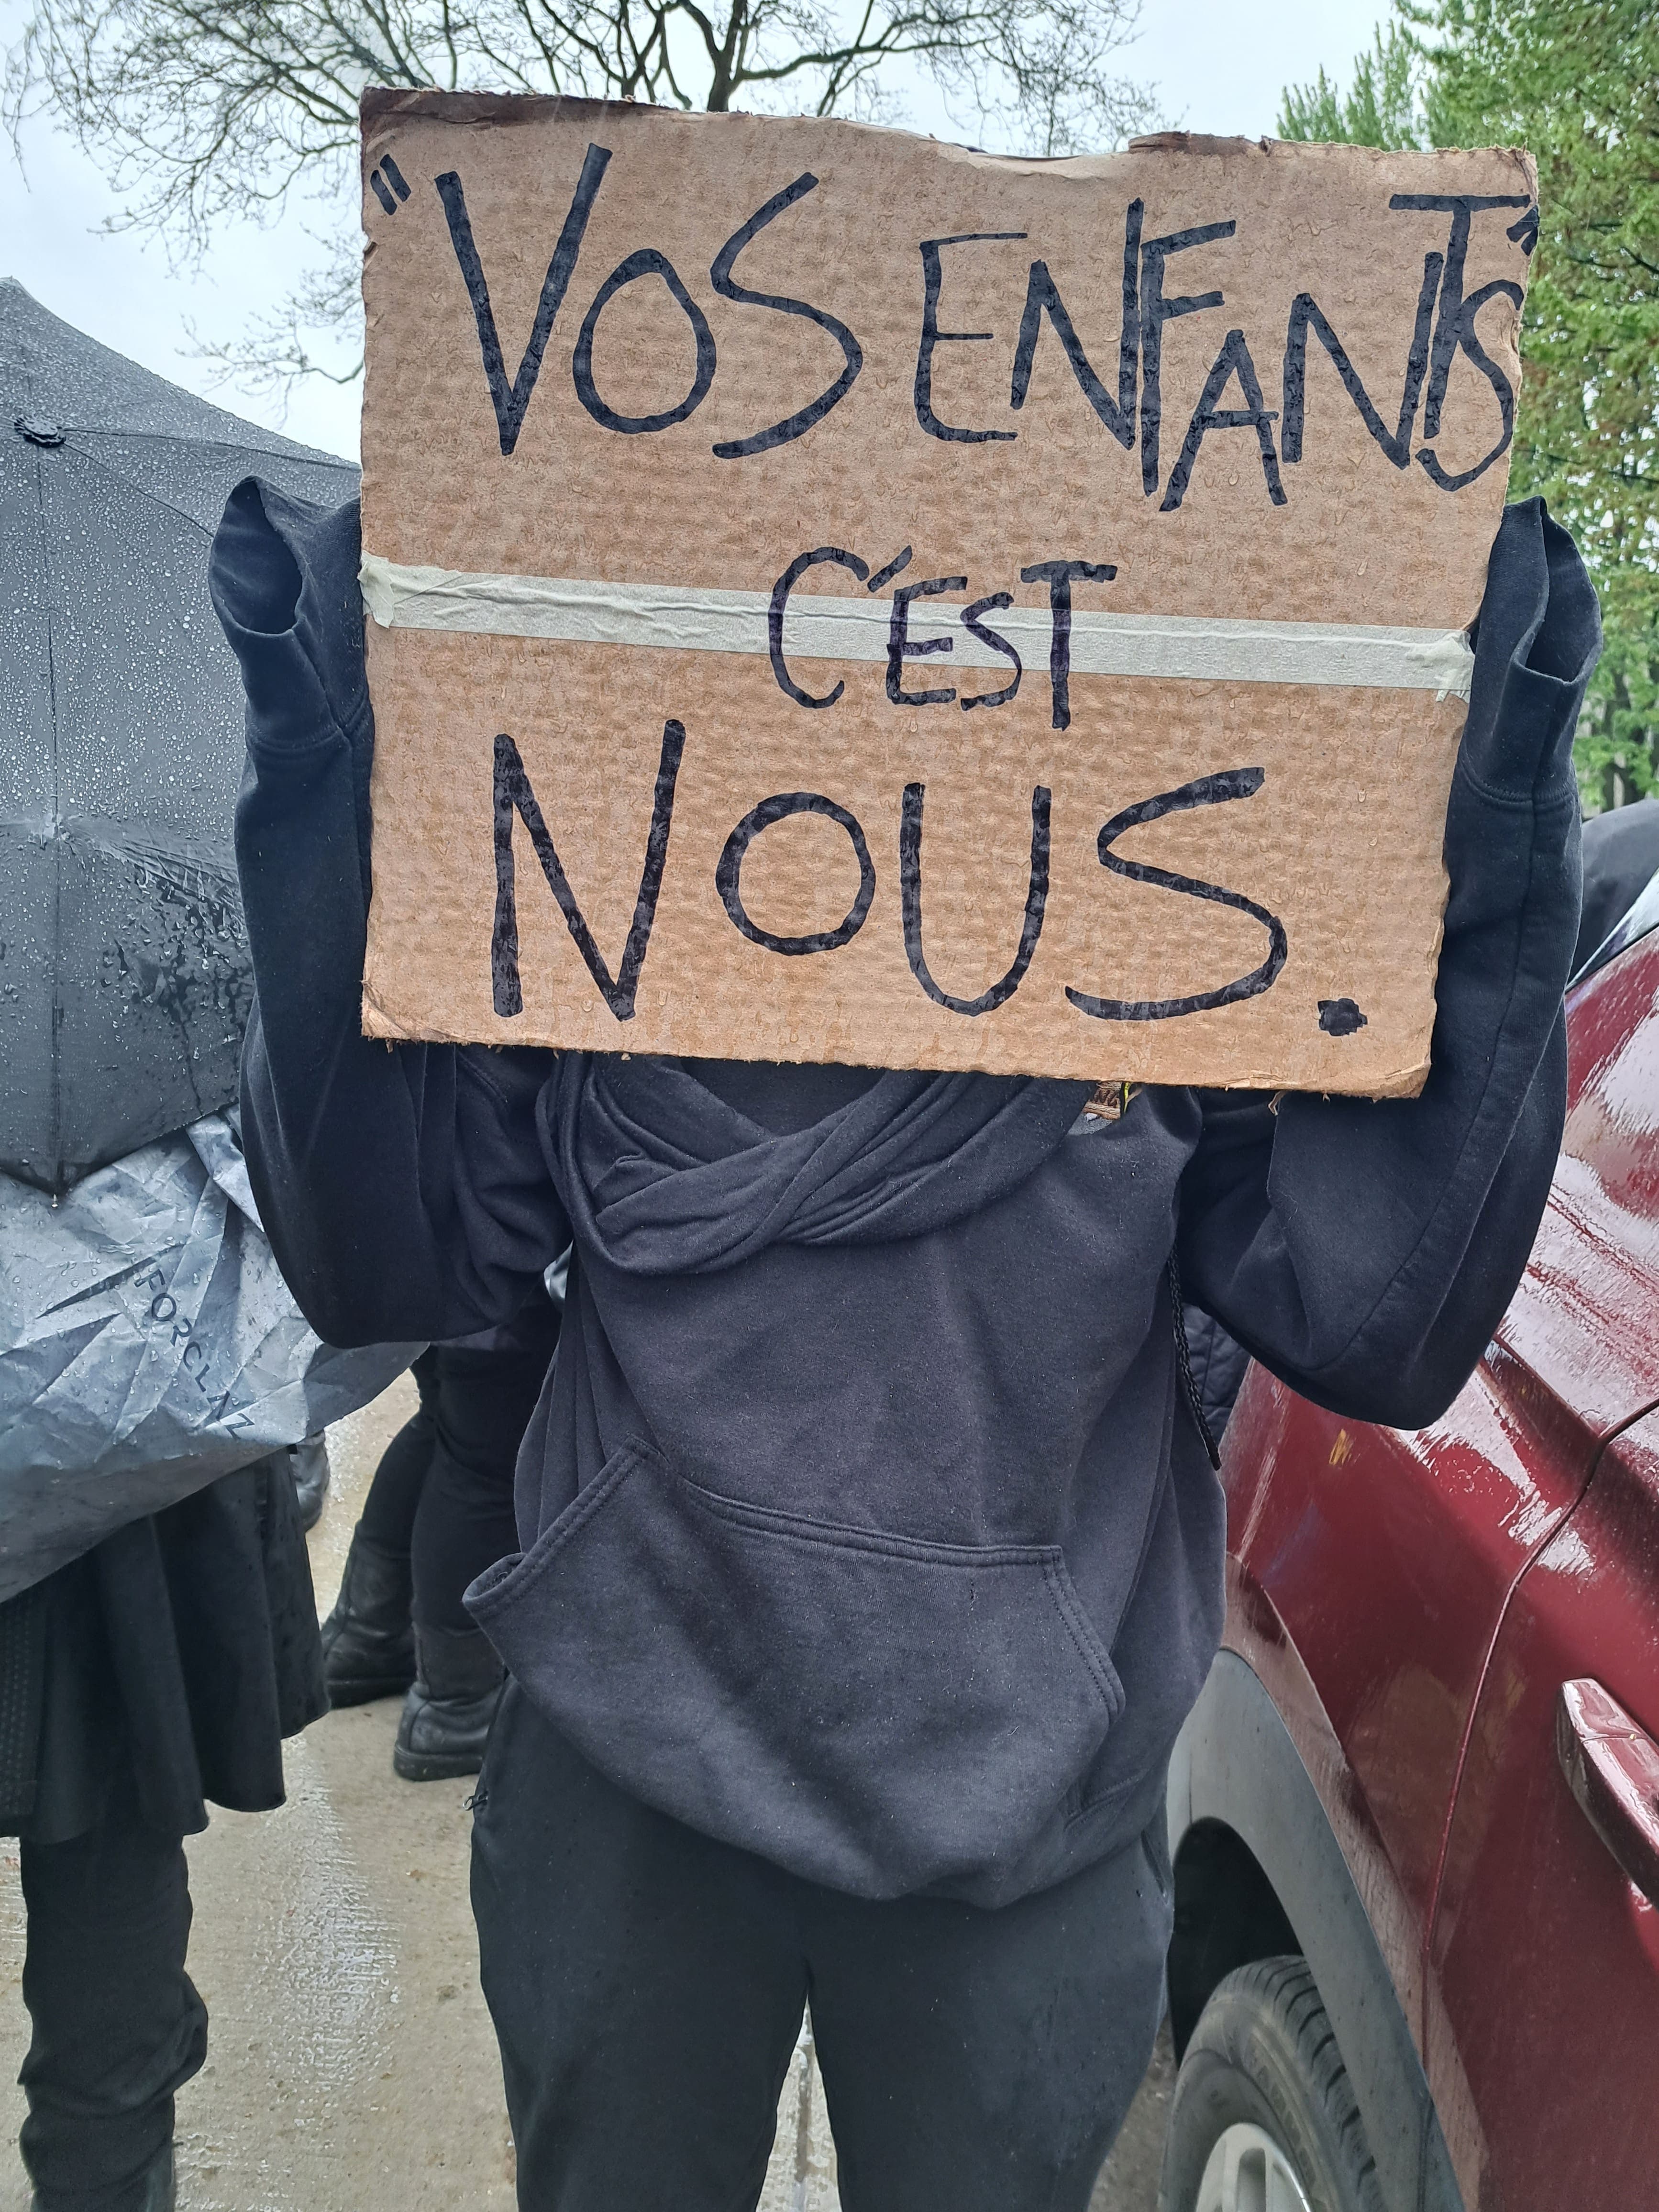 "VOS ENFANTS"
C'EST
NOUS.
FORCLAZ